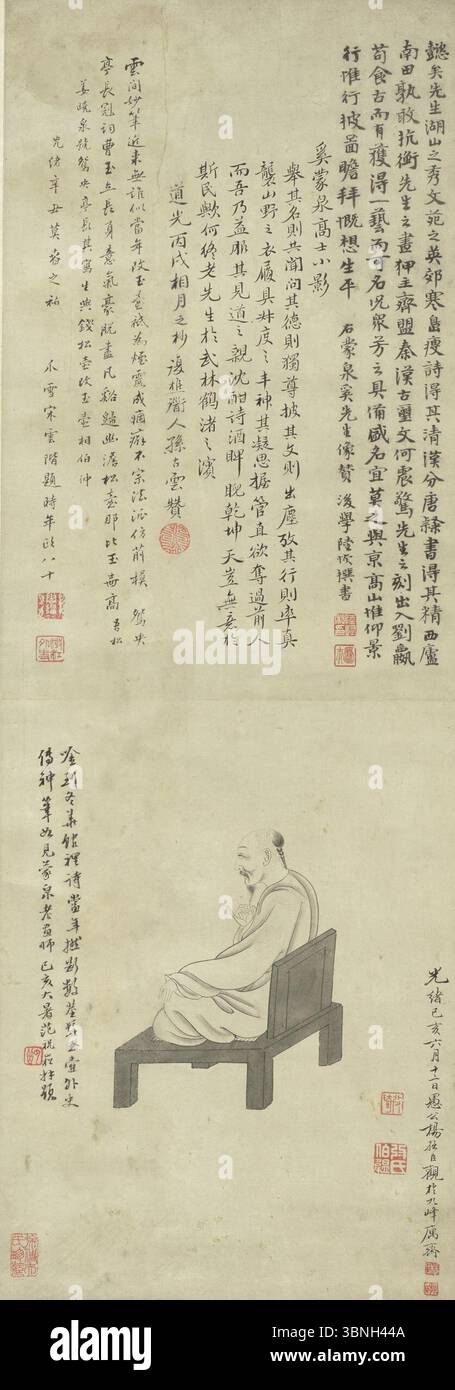 懿矣先生湖山之秀文苑之英郊寒島瘦詩得其清漢分唐隸書得其精西廬
南田孰敢抗衡先生之畫狎主齊盟秦漢古璽文何震驚先生之刻出入劉嬴
苟食古而有獲得一藝而可名況眾芳之具備盛名宜莫之與京高山堆仰景
行堆行披圖瞻拜慨想生平
石蒙泉奚先生像贊 後學陸 撰書
奚蒙泉高士小影
舉其名則共聞問其德則獨尊披其文則出塵孜其行則率真
襲山野之衣履具 度之丰神其凝思握管直欲奪過前人
而吾乃益耶其見道之親沈酣詩酒睥睨乾坤天豈無意於
斯民歟何終老先生於武林鶴渚之濱
道光丙戌相月之杪 孫古雲贊
雲間妙筆近來無誰似當年改玉壺祇為煙霞成痼癖不宗法派仿前模 鴛央
亭長冠詞曹玉立長身意氣豪脫盡凡谿 幽澹松壺那比玉壺高
姜曉泉號鴛央亭長其寫生與錢松壺改玉壺相伯仲
光緒辛丑莫春之初 小雪宋雲階題時年政八十
冬 館裡詩當年 數莖 玉壺外史
傳神筆如見蒙泉老畫師 己亥大暑范祝 題
光緒己亥六月十二日愚公楊 自觀於九峰 齋
alamy
Image ID: 3BNH44A
www.alamy.com